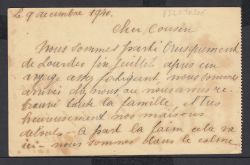 Le 9 decembre 1940.
Cher Cousin
Nous sommes partis
de Lourdes fin juillet après un
voyage assez fatigant, nous sommes
arrivés chez nous où nous avons re-
trouvé toute la famille, et très
heureusement nos maisons
debouts - à part la faim cela va
ici - nous sommes dans le calme